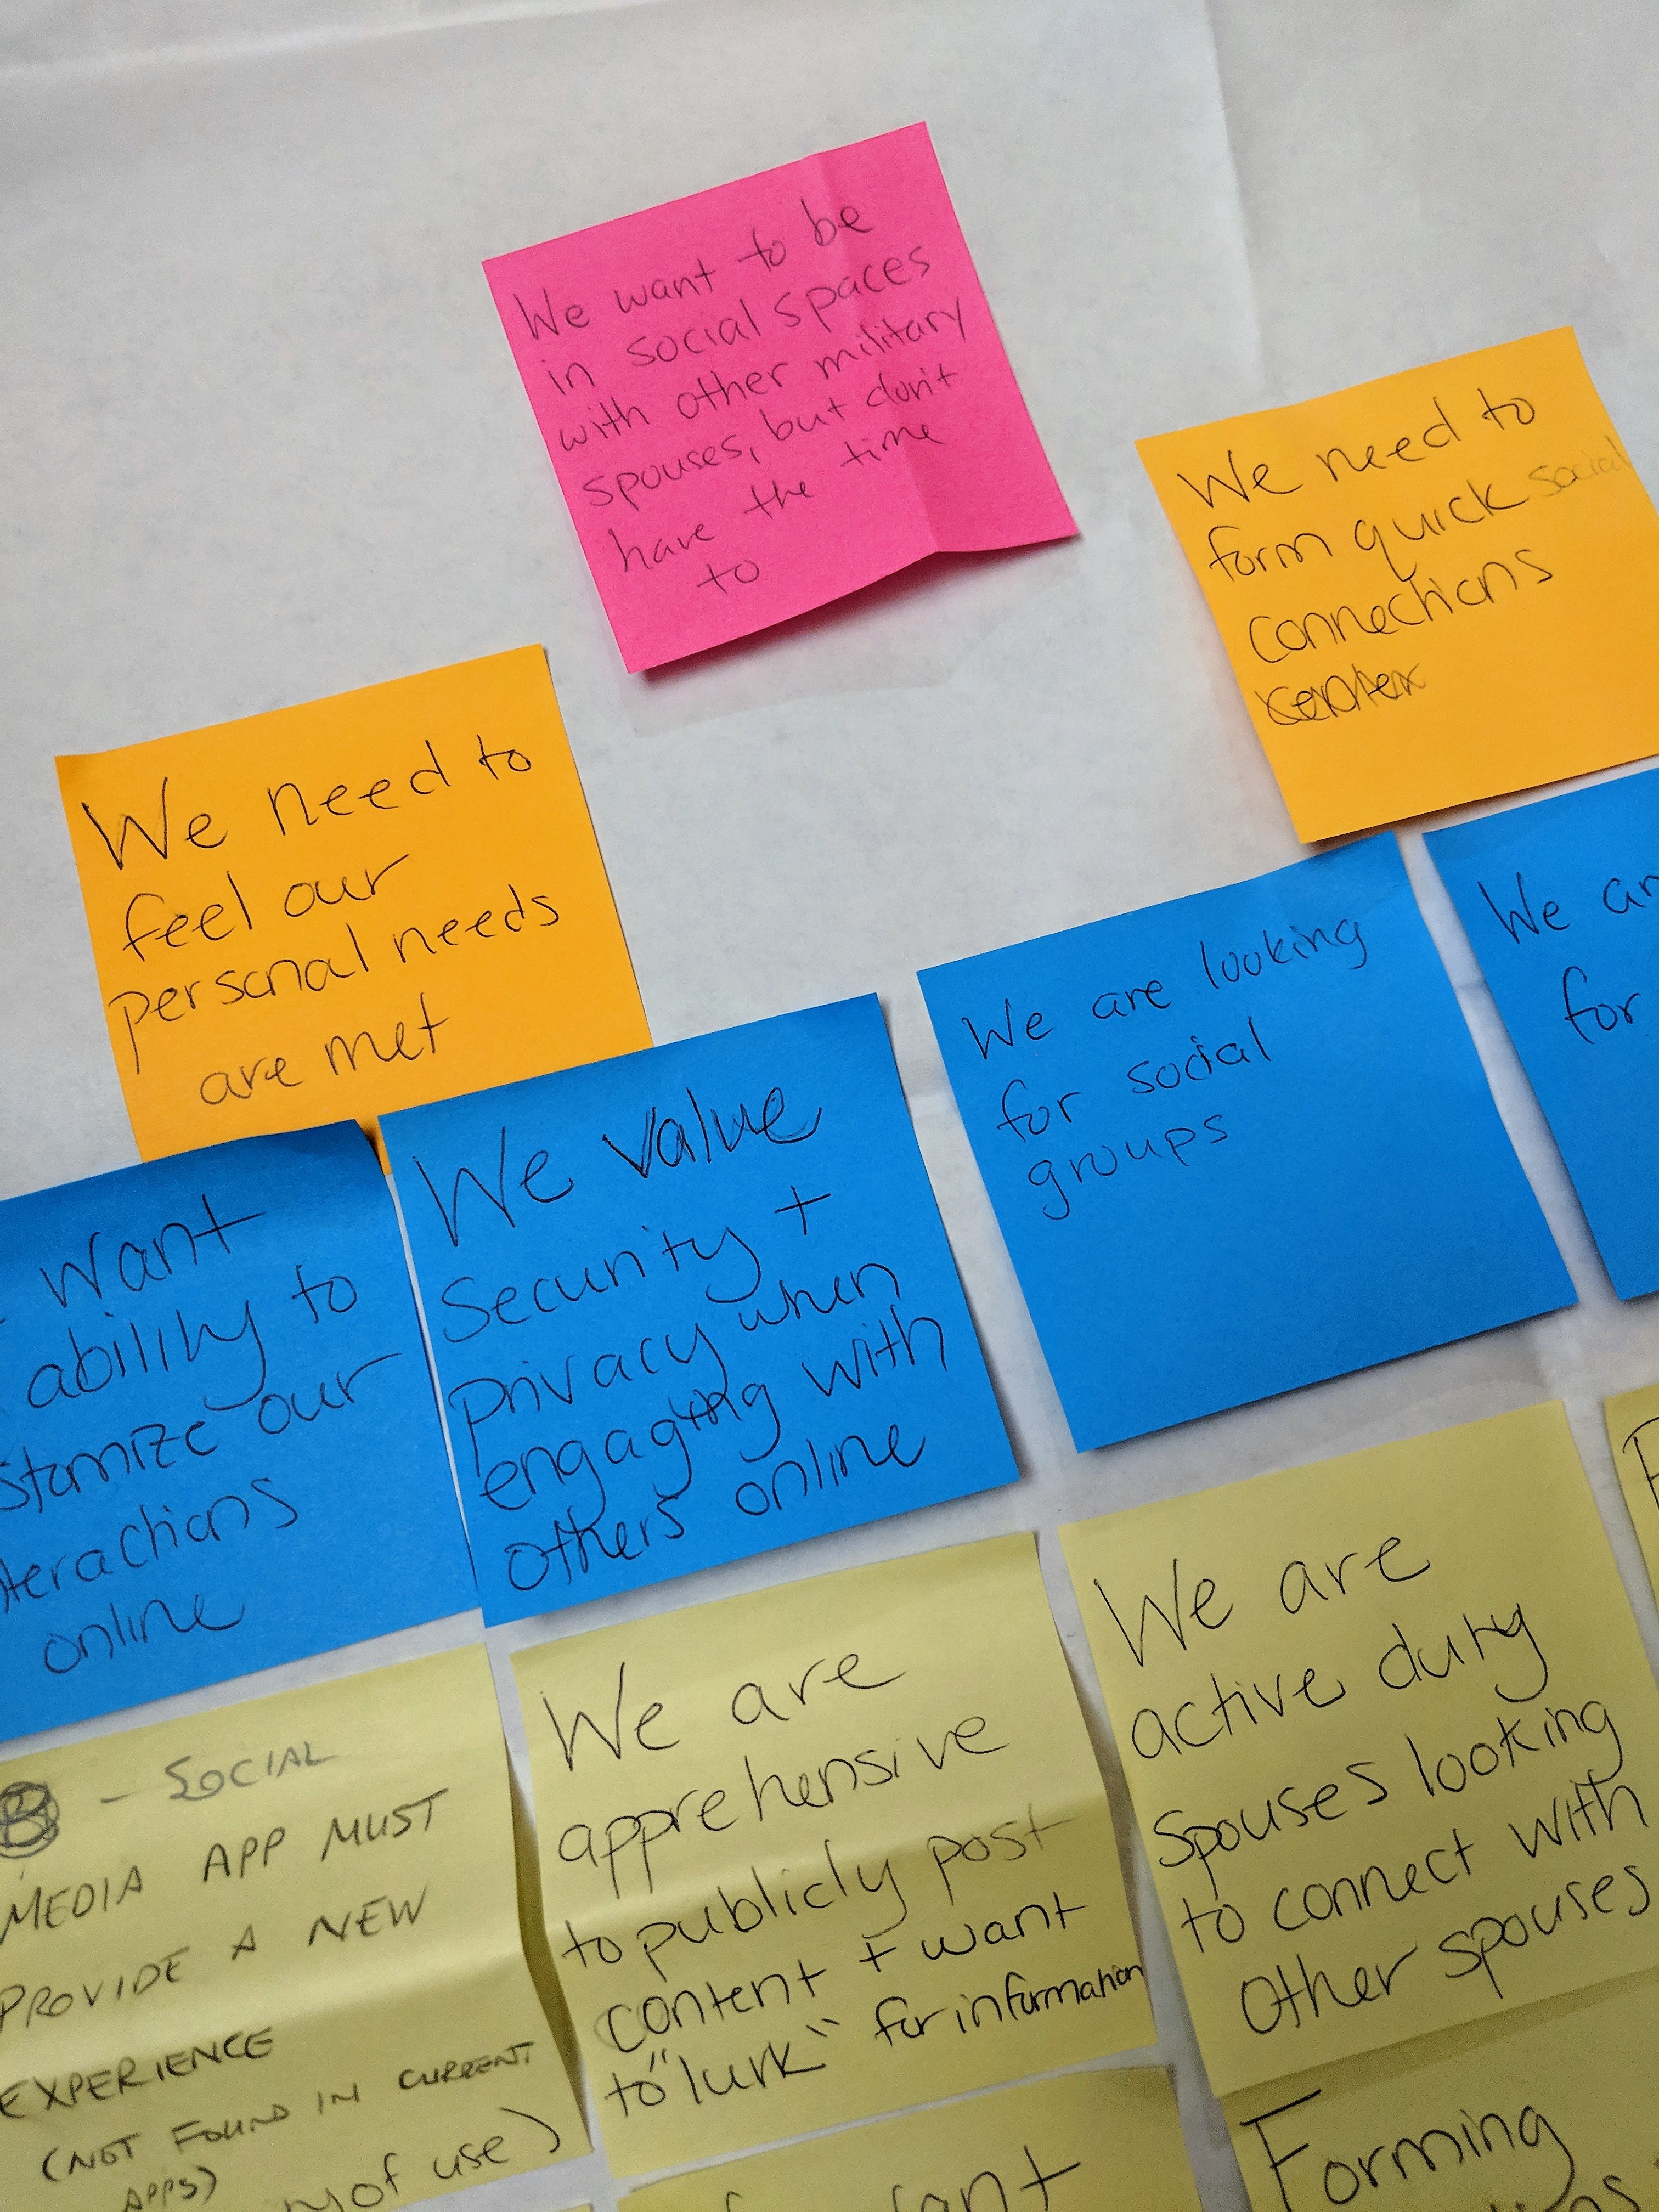 We want to be
in social spaces
with other military
spouses, but don't
have the time
to
We need to
form quick social
connections
We need to
feel our
personal needs
are met
want
ability to
stomize our
teractions
online
We value
Security +
privacy when
engaging with
others online
We are looking
for social
groups
We
for
B - SOCIAL
MEDIA APP MUST
PROVIDE A NEW
EXPERIENCE
(NOT FOUND IN CURRENT
APPS)
We are
apprehensive
to publicly post
content + want
to "lurk" for information
We are
active duty
Spouses looking
to connect with
other spouses
of use)
Forming